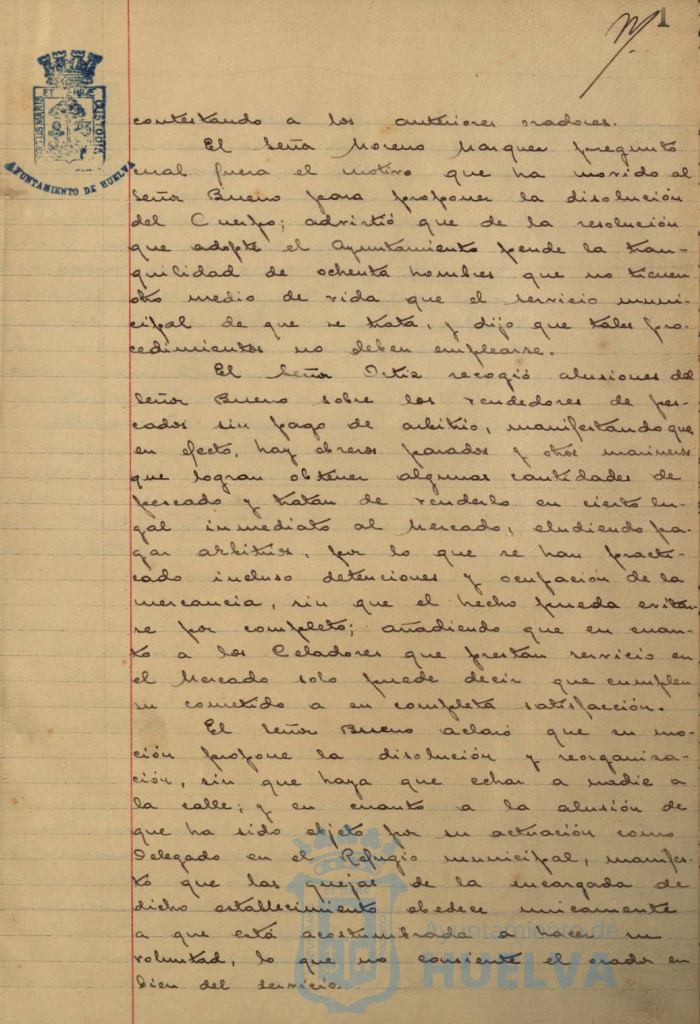 1
contestando a los anteriores oradores.
El Señor Moreno Marquez preguntó
cual fuera el motivo que ha movido al
Señor Bueno para proponer la disolución
del Cuerpo; advirtió que de la resolución
que adopte el Ayuntamiento pende la tran-
quilidad de ochenta hombres que no tienen
otro medio de vida que el servicio muni-
cipal de que se trata, y dijo que tales pro-
cedimientos no deben emplearse.
El Señor Ortiz recogió alusiones del
Señor Bueno sobre los vendedores de pes-
cados sin pago de arbitrio, manifestando que
en efecto, hay obreros parados y otros marineros
que logran obtener algunas cantidades de
pescado y tratan de venderlo en cierto lu-
gal inmediato al Mercado, eludiendo pa-
gar arbitrios, por lo que se han practi-
cado incluso detenciones y ocupación de la
mercancia, sin que el hecho pueda evitar-
se por completo; añadiendo que en cuan-
to a los Celadores que prestan servicio en
el Mercado solo puede decir que cumplen
su cometido a su completa satisfacción.
El Señor Bueno aclaró que su mo-
ción propone la disolución y reorganiza-
ción, sin que haya que echar a nadie a
la calle; y en cuanto a la alusión de
que ha sido objeto por su actuación como
Delegado en el Refugio municipal, manifes-
tó que las quejas de la encargada de
dicho establecimiento obedece unicamente
a que está acostumbrada a hacer su
voluntad, lo que no consiente el orador en
bien del servicio.
PORTUS MARIS ET TERRE CUSTODIA
AYUNTAMIENTO DE HUELVA
Ayuntamiento de
HUELVA